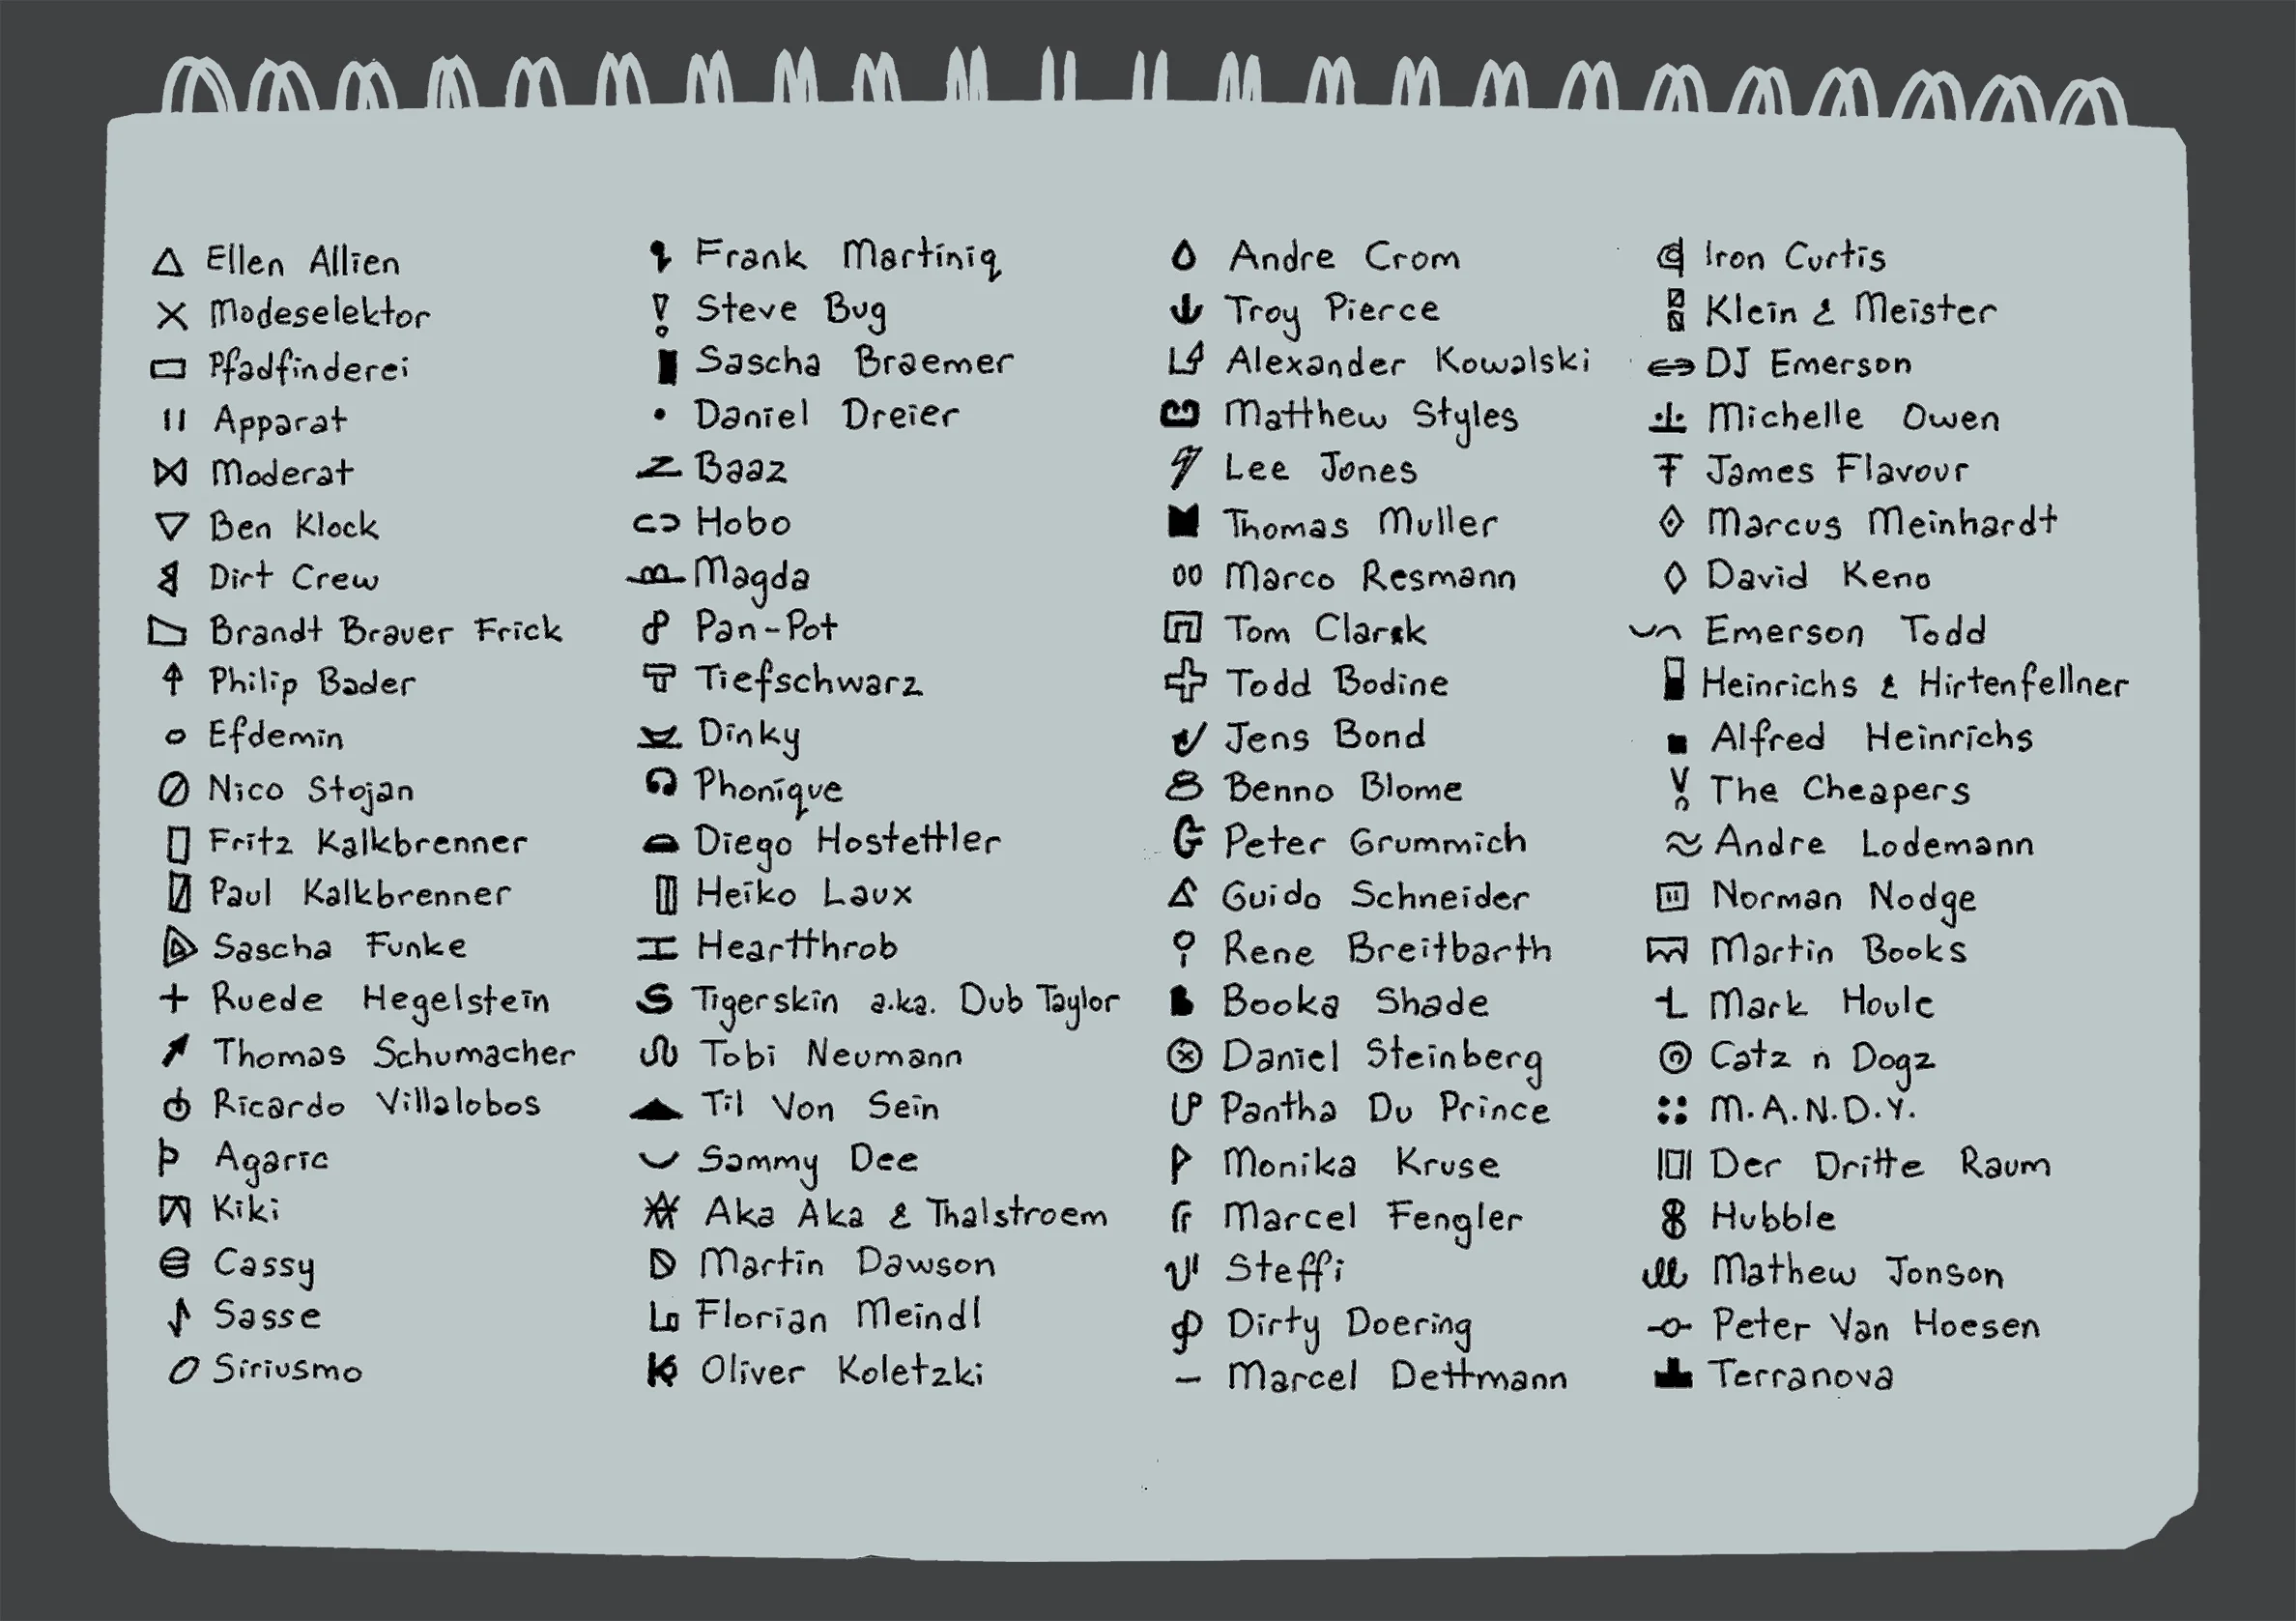 Ellen Allien
Modeselektor
Pfadfinderei
Apparat
Moderat
Ben Klock
Dirt Crew
Brandt Brauer Frick
Philip Bader
Efdemin
Nico Stojan
Fritz Kalkbrenner
Paul Kalkbrenner
Sascha Funke
Ruede Hegelstein
Thomas Schumacher
Ricardo Villalobos
Agaric
Kiki
Cassy
Sasse
Siriusmo
Frank Martiniq
Steve Bug
Sascha Braemer
Daniel Dreier
Baaz
Hobo
Magda
Pan-Pot
Tiefschwarz
Dinky
Phonique
Diego Hostettler
Heiko Laux
Heartthrob
Tigerskin a.ka. Dub Taylor
Tobi Neumann
Til Von Sein
Sammy Dee
Aka Aka & Thalstroem
Martin Dawson
Florian Meindl
Oliver Koletzki
Andre Crom
Troy Pierce
Alexander Kowalski
Matthew Styles
Lee Jones
Thomas Muller
Marco Resmann
Tom Clark
Todd Bodine
Jens Bond
Benno Blome
Peter Grummich
Guido Schneider
Rene Breitbarth
Booka Shade
Daniel Steinberg
Pantha Du Prince
Monika Kruse
Marcel Fengler
Steffi
Dirty Doering
Marcel Dettmann
Iron Curtis
Klein & Meister
DJ Emerson
Michelle Owen
James Flavour
Marcus Meinhardt
David Keno
Emerson Todd
Heinrichs & Hirtenfellner
Alfred Heinrichs
The Cheapers
Andre Lodemann
Norman Nodge
Martin Books
Mark Houle
Catz n Dogz
M.A.N.D.Y.
Der Dritte Raum
Hubble
Mathew Jonson
Peter Van Hoesen
Terranova